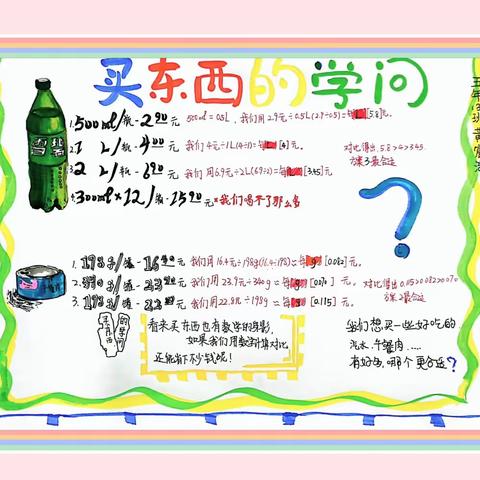 买东西的学问
1.500ml/瓶-2.90元 500ml=0.5L,我们用2.9元÷0.5L(2.9÷0.5)=每L[5.8]元.
2.1L/瓶-4.00元 我们4元÷1L(4÷1)=每L[4]元.
3.2L/瓶-6.90元 我们用6.9元÷2L(6.9÷2)=每L[3.45]元
4.300ml×12/ -15.90元×我们喝不了那么多
对比得出:5.8>4>3.45.
方案3最合适
雪碧
?
1.198g/罐-16.40元 我们用16.4元÷198g(16.4÷198)≈每g[0.082]元.
2.340g/罐-23.90元 我们用23.9元÷340g≈每g[0.070]元
3.198g/罐-22.80元 我们用22.8元÷198g≈每g[0.115]元.
对比得出0.115>0.082>0.070
方案2最合适
买东西的学问
看来买东西也有数学的身影,
如果我们用数学计算对比
还能省下不少钱呢!
我们想买一些好吃的
汽水、牛蟹肉……
有好多,哪个更合适?